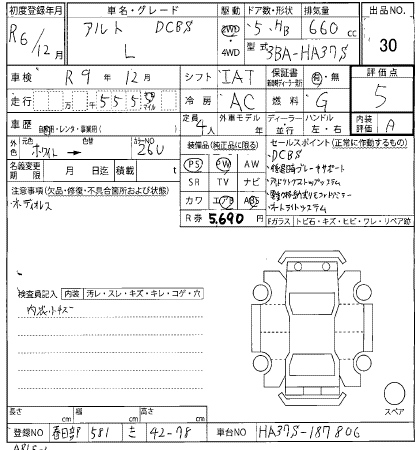 初度登録年月 車名・グレード 駆動 ドア数・形状 排気量 出品NO.
R6/12月 アルト DCBS L 2WD 4WD 5.HB 660cc 30
型式 3BA-HA37S
車検 R9年12月 シフト IAT 保証書 有・無 評価点 5
走行 万 千 555 マイル 冷房 AC 燃料 G
車歴 自家用・レンタ・事業用( ) 定員 4人 外車モデル 年 ディーラー 並行 ハンドル 左・右 内装評価 A
外色 ホワイト 色替 カラーNO 26U 装備品 (純正品に限る) セールスポイント(正常に作動するもの)
名義変更期限 月 日迄 積載 t PS PW AW
・DCBS
注意事項(欠品・修復・不具合箇所および状態) SR TV ナビ
・オーディオレス カワ エアB ABS
R券 5,690円 Fガラス トビ石・キズ・ヒビ・ワレ・リペア跡
検査員記入 内装 汚レ・スレ・キズ・キレ・コゲ・穴
スペア
長さ cm 幅 cm 高さ cm
登録NO 春日部 581 さ 42-78 車台NO HA37S-187806